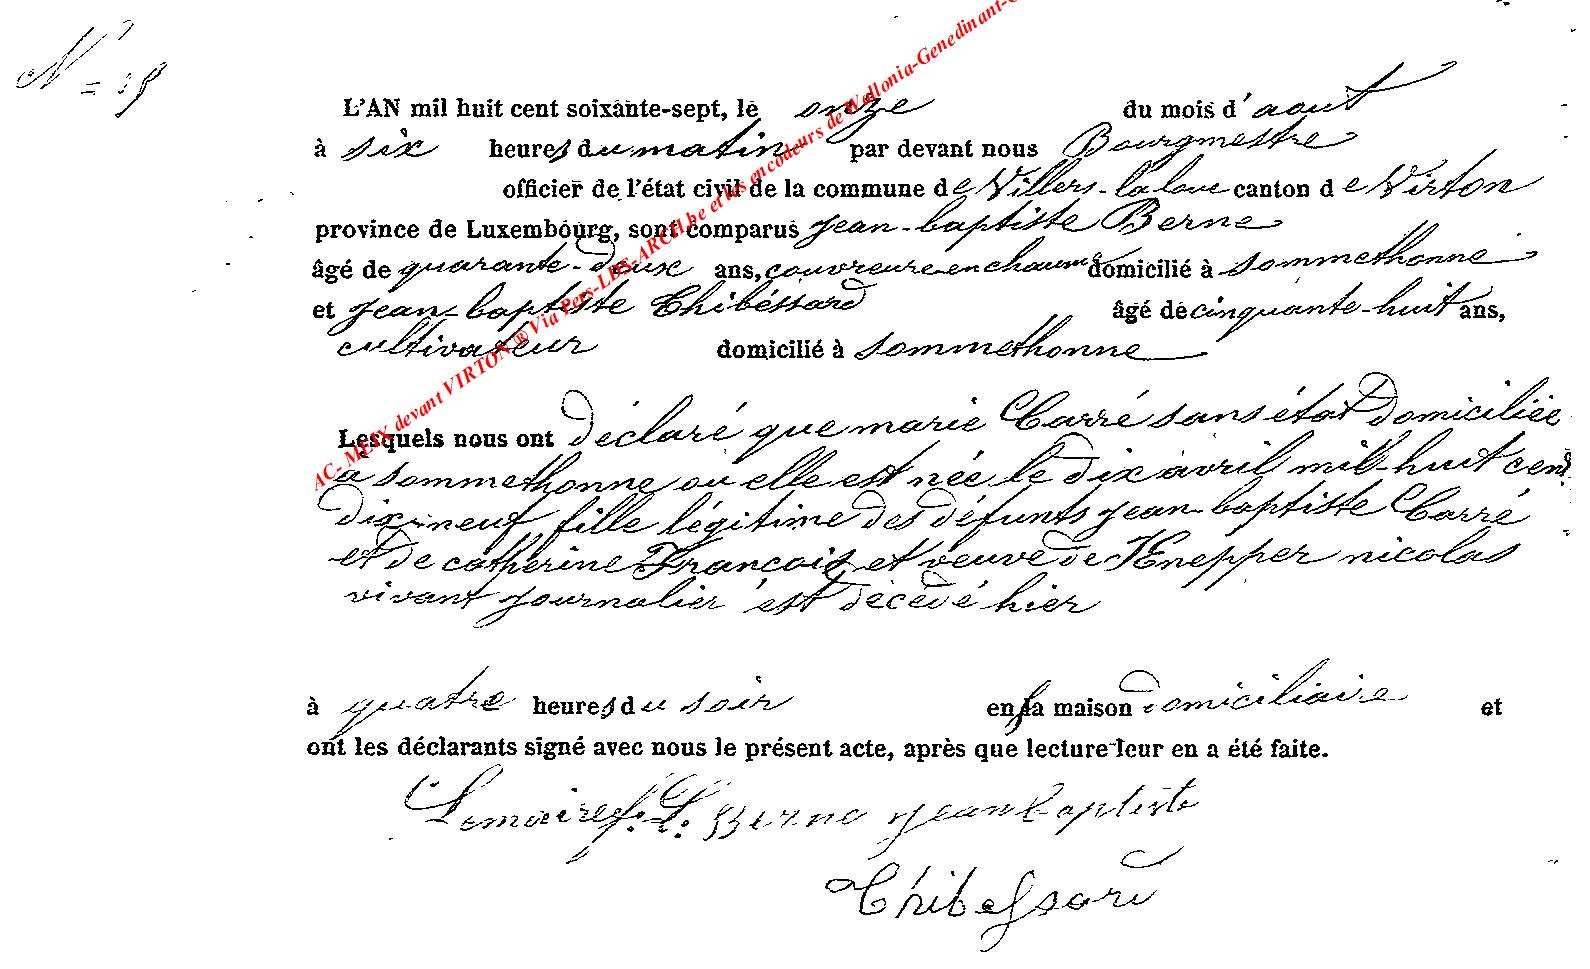 N° = 19
L'AN mil huit cent soixante-sept, le onze du mois d'aout
à six heures du matin par devant nous Bourgmestre
officier de l'état civil de la commune de Villers-la loue canton de Virton
province de Luxembourg, sont comparus jean-baptiste Berne
âgé de quarante-deux ans, couvreure en chaume domicilié à sommethonne
et jean-baptiste Thibéssard âgé de cinquante-huit ans,
cultivateur domicilié à sommethonne
Lesquels nous ont déclaré que marie Carré sans état domiciliée
a sommethonne ou elle est née le dix avril mil-huit cent
dix-neuf fille légitime des défunts jean-baptiste Carré
et de catherine François et veuve de Knepper nicolas
vivant journalier est décédé hier
à quatre heures du soir en sa maison domiciliaire et
ont les déclarants signé avec nous le présent acte, après que lecture leur en a été faite.
Lemaire Berne jean baptiste
Thibessard
AC-MEIX devant VIRTON ® Via Pers-LDS-ARCH.be et les encodeurs de Wallonia-Genedinant-